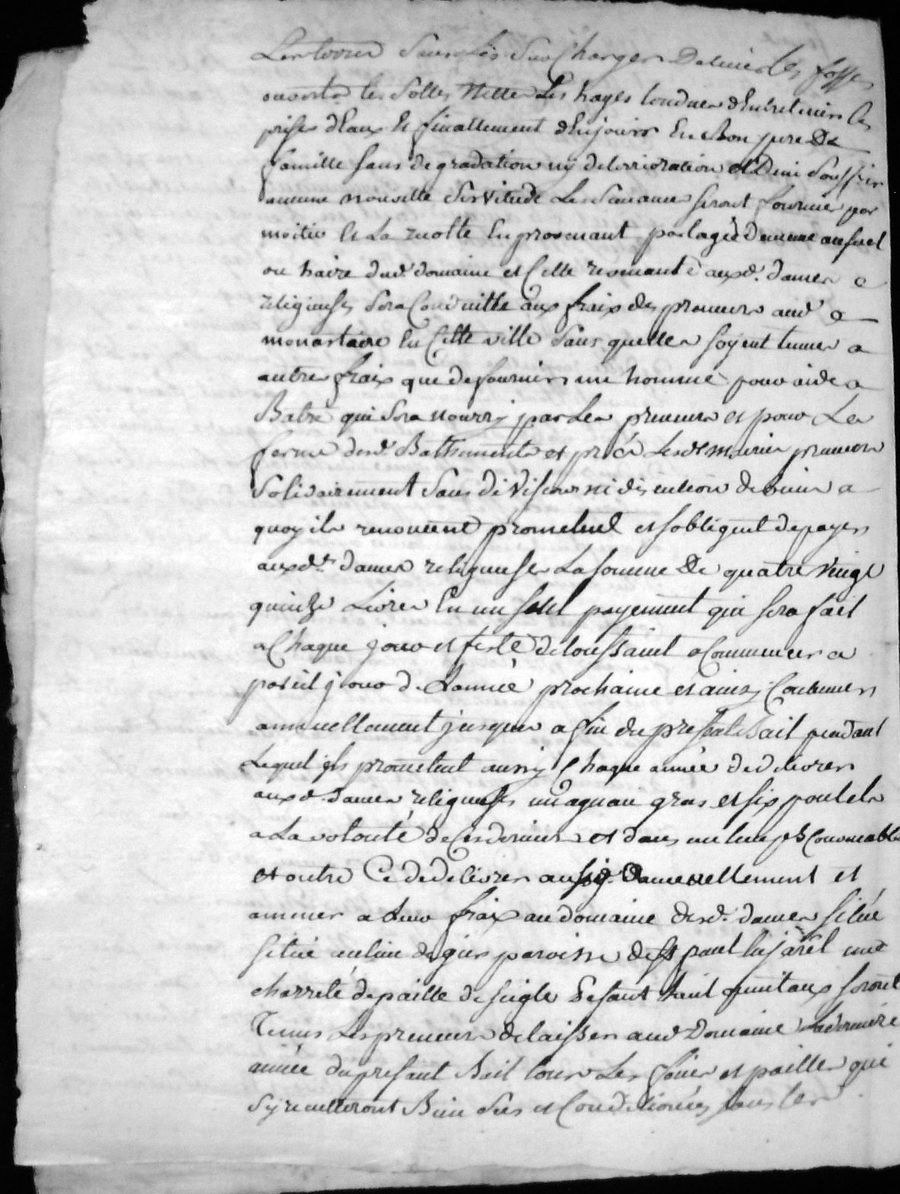 Les terres sans les surCharger Detenir les fosses
ouverts les Solles Nettes Les hayes tondues d'Entretenir les
prises d'Eaux Et finallement d'En jouir En bon pere De
famille sans degradation ny deterrioration et Deni souffrir
aucune nouvelle Servitude Les Semances seront fournies par
moitie Et La recolte En provenant partagée de meme au suel
ou haire dud. domaine et Celle revenante auxd. dames
religieuses sera Conduitte aux frais des preneurs aud.
monastaire En Cette ville sans quelles soyent tenues a
autres fraix que de fournir un homme pour aider a
Batre qui sera nourry par les preneurs et pour La
ferme desd. Bathiments et prés Lesd. preneurs
Solidairement Sans division ni discution de biens a
quoy ils renoncent promettent et sobligent de payer
auxd. dames religieuses La somme De quatre vingt
quinze Livres En un seul payement qui sera fait
a Chaque jour et feste de toussaint a Commencer a
pareil jour de Lannée prochaine et ainsy Continuer
annuellement jusques a fin du present Bail pendant
Lequel ils promettent aussy Chaque année de delivrer
auxd. dames religieuses un agneau gras et six poulets
a La volonté de Ces dernieres et dans un temps Convenable
et outre Ce de delivrer aussy annuellement et
amener a Leurs fraix au domaine desd. dames situé
situé au lieu de gies paroisse de St paul en jarêt une
charreté de paille de seigle Pesant huit quintaux seront
Tenus Les preneurs de laisser aud. Domaine La derniere
année du present Bail tous Les foins et pailles qui
sy recolteront Bien secs et Conditionnés sans les